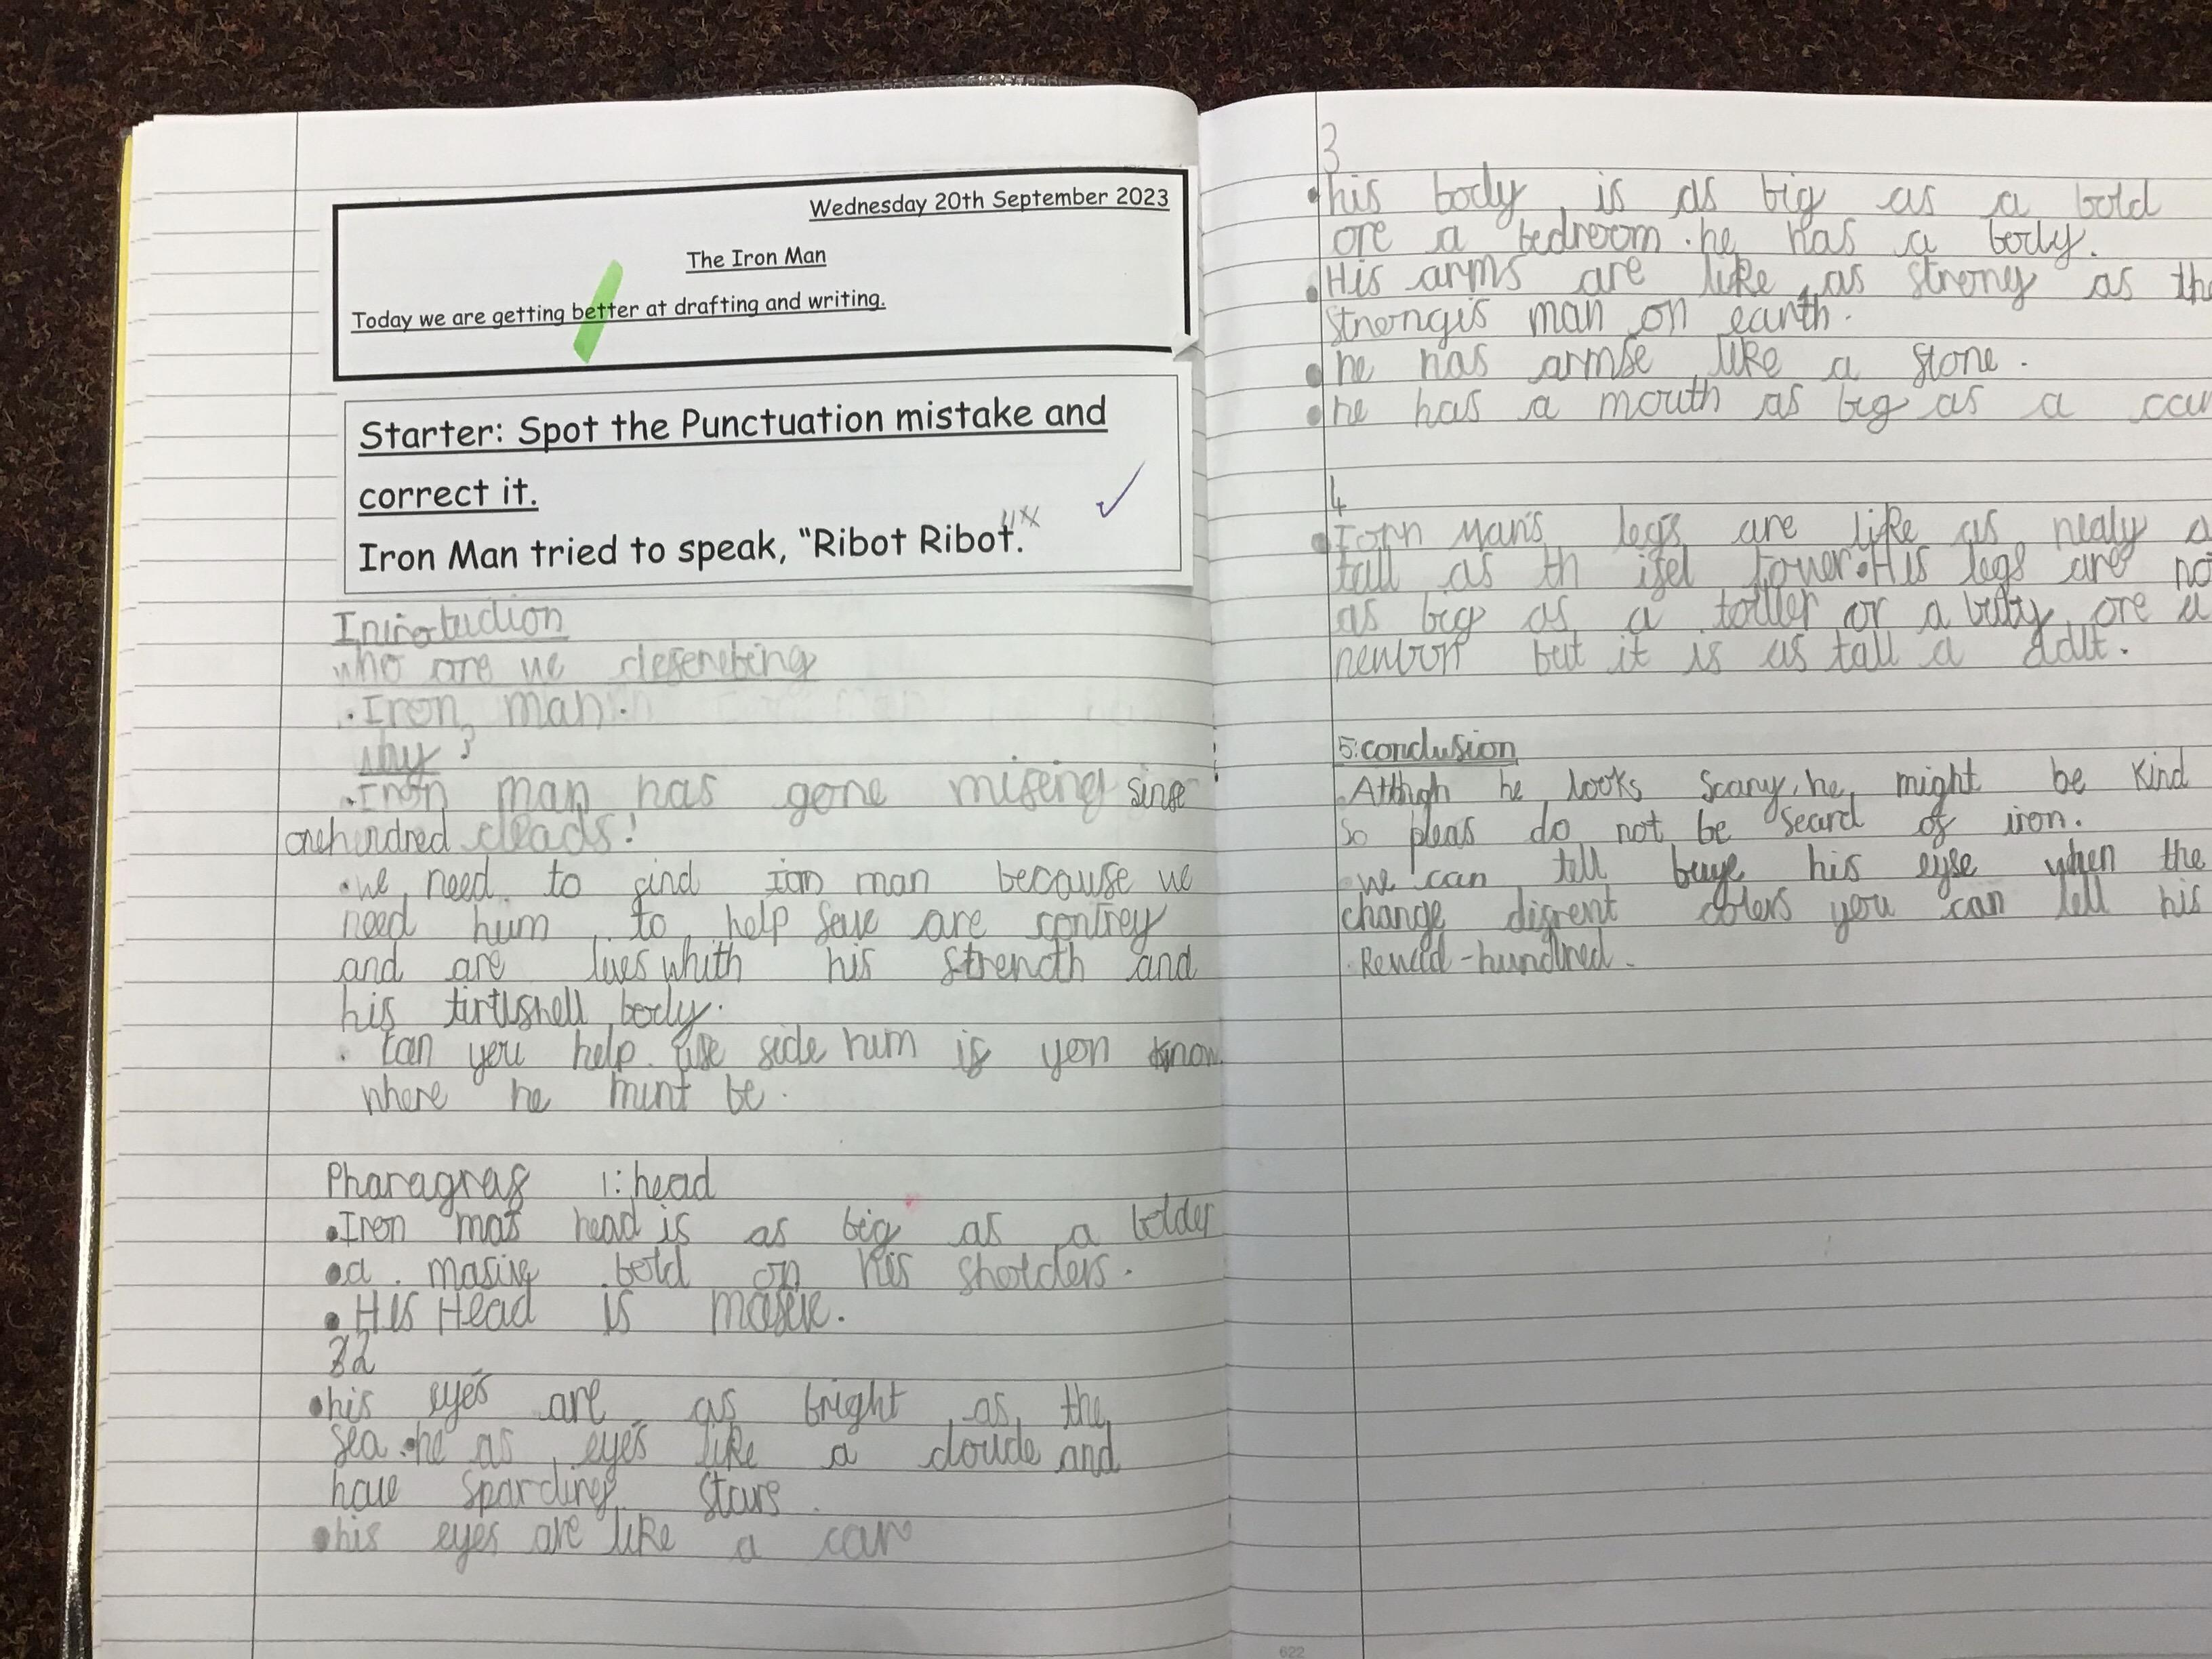 Wednesday 20th September 2023
The Iron Man
Today we are getting better at drafting and writing.
Starter: Spot the Punctuation mistake and
correct it.
Iron Man tried to speak, "Ribot Ribot."
Introduction
who are we
. Iron man.
why?
. Iron man has gone mising sinse
onehundred
. we need to find iron man because we
need hum to help save are contrey
and are lives whith his strength and
his body.
. can you help use side hum is you know
where he be.
Pharagras 1: head
• Iron mas head is as big as a bolder
• a masive bold on his sholders.
• His Head is masive.
2
• his eyes are as bright as the
sea. he as eyes like a cloude and
have stars.
• his eyes are like a car
3
• his body is as big as a bold
ore a bedroom. he has a body.
• His arms are like as strong as the
strongis man on earth.
• he has armse like a stone.
• he has a mouth as big as a
4
• Iorn Man's legs are like as nealy
tall as th ifel tower. His legs are not
as big as a toller or a baby ore a
newborn but it is as tall a adlt.
5: conclusion
. Althgh he looks scary, he might be kind
so pleas do not be scard of iron.
. we can tell buye his eyse when the
change difrent colers you can tell his
. Reward - hundred.
622